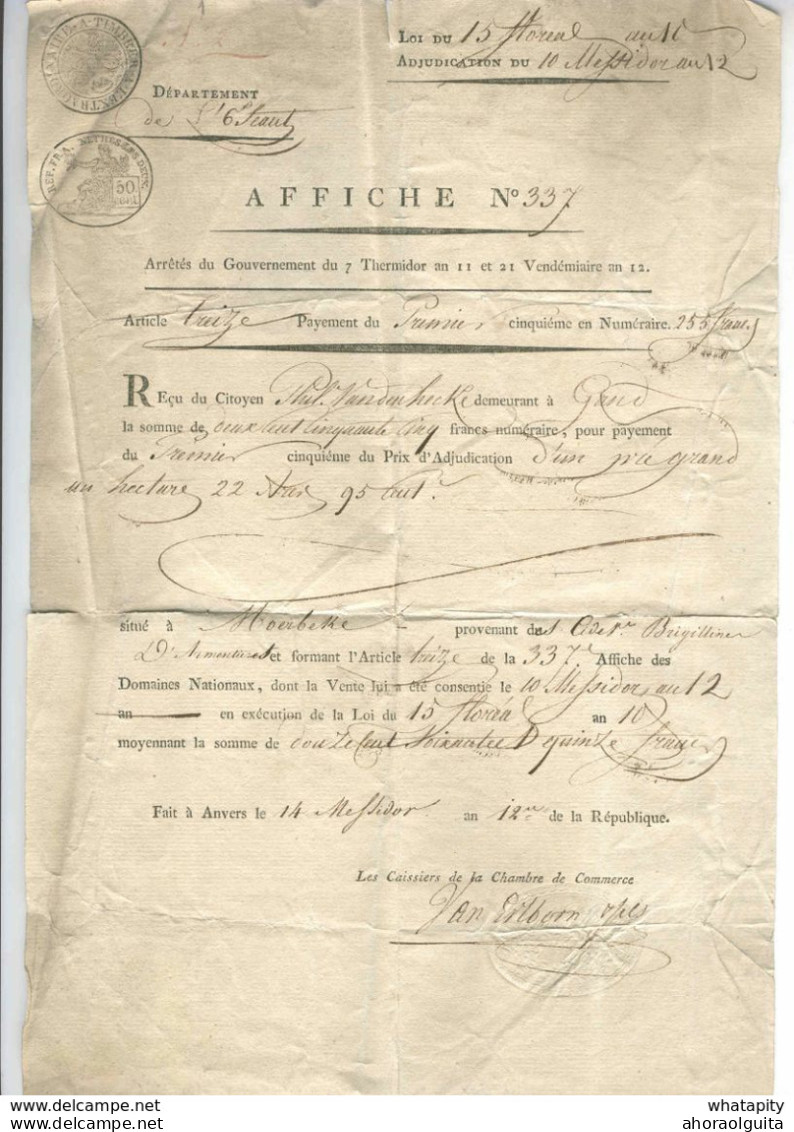 LOI DU 15 floreal an 10
ADJUDICATION DU 10 Messidor an 12
DÉPARTEMENT
de l'Escaut
RÉP. FRA. NETHES DEUX.
50
CENT
AFFICHE Nº 337
Arrêtés du Gouvernement du 7 Thermidor an 11 et 21 Vendémiaire an 12.
Article treize Payement du Premier cinquiéme en Numéraire. 255 francs
REçu du Citoyen Phil. Vandenhecke demeurant à Gand
la somme de deux Cent Cinquante Cinq francs numéraire, pour payement
du Premier cinquiéme du Prix d'Adjudication d'un pre grand
un hectare 22 Ares 95 Cent.
situé à Moerbeke provenant des Brigittines
D'Armentieres et formant l'Article treize de la 337e Affiche des
Domaines Nationaux, dont la Vente lui a été consentie le 10 Messidor an 12
an en exécution de la Loi du 15 floréal an 10
moyennant la somme de douze Cent Soixante quinze francs
Fait à Anvers le 14 Messidor an 12 de la République.
Les Caissiers de la Chambre de Commerce
Van Ertborn
www.delcampe.net
whatapity
ahoraolguita